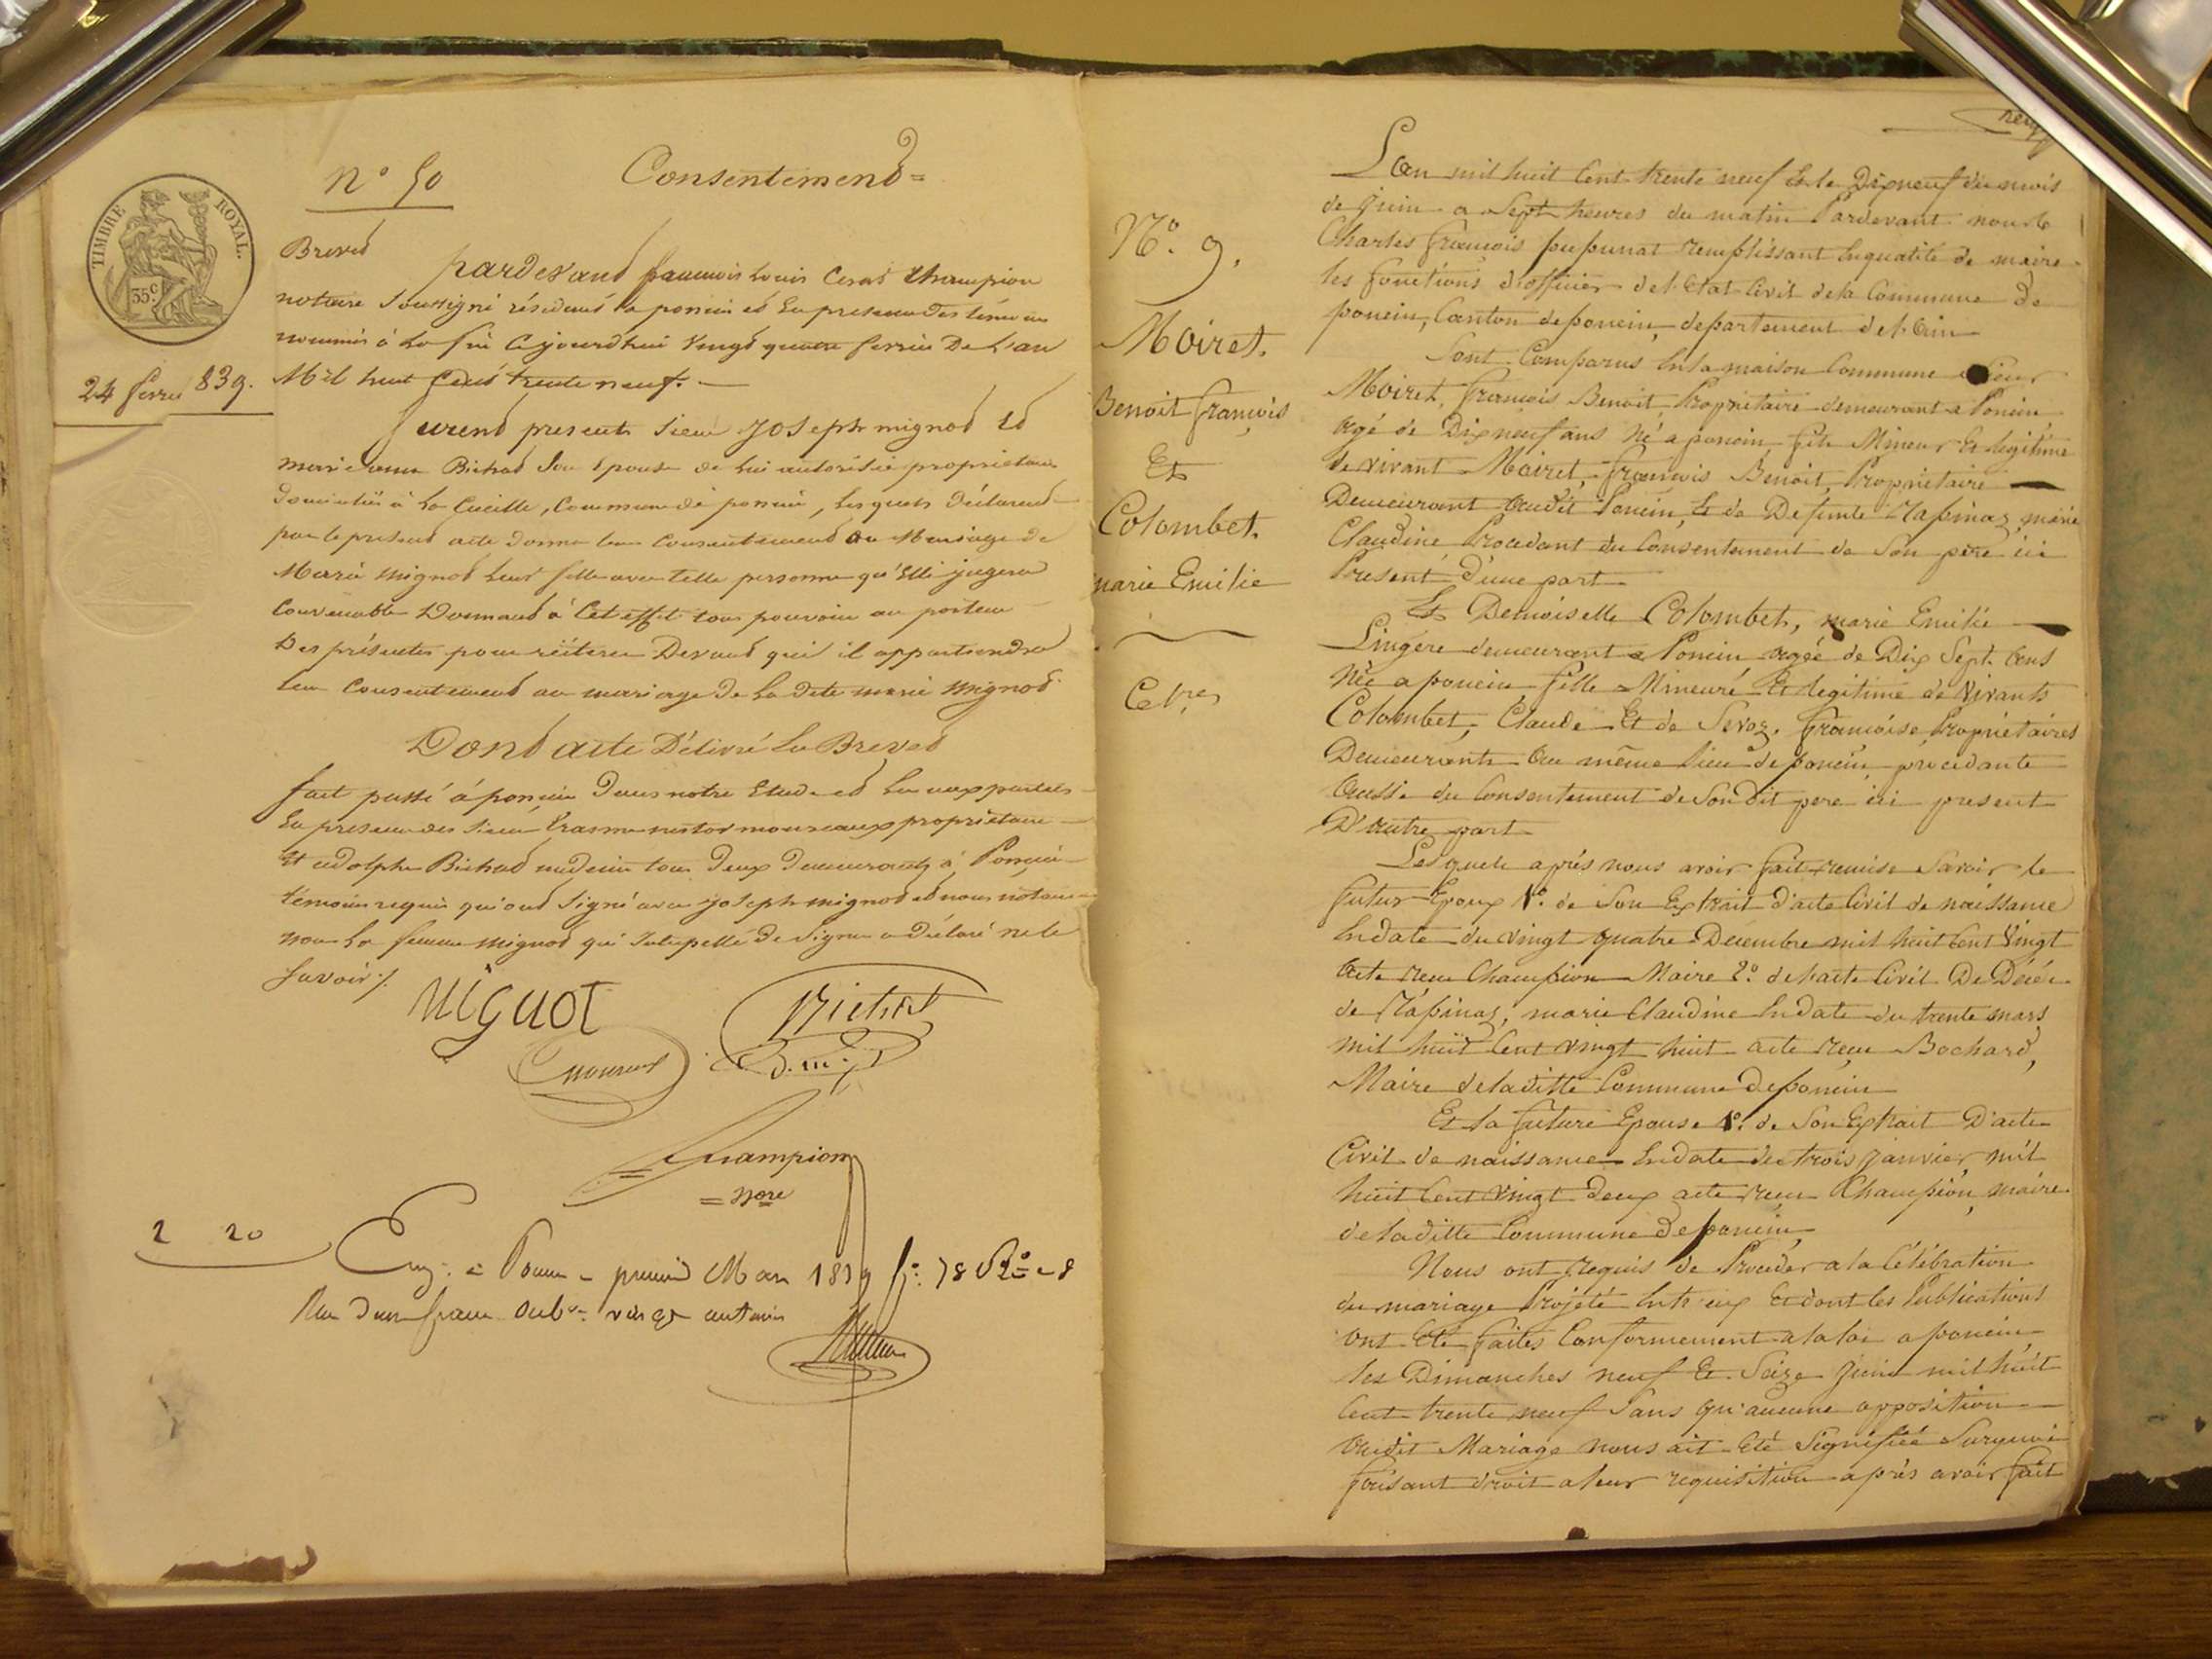 TIMBRE ROYAL.
35c
24 fevrier 839.
N° 50
Consentement =
Brevet
pardevant francois Louis Cesar Champion
notaire soussigné résidant a poncin et en presence des témoins
nommés à la fin cejourd'hui vingt quatre fevrier De L'an
Mil huit Cent trente neuf. —
furent presents sieur Joseph mignot et
marie Bichat son épouse de lui autorisée propriétaires
domiciliés à la Cueille, Commune de poncin, lesquels déclarent
par le present acte donner leur consentement au Mariage de
Marie mignot leur fille avec telle personne qu'Elle jugera
Convenable Donnant à Cet effet tous pouvoirs au porteur
Des présentes pour réiterer Devant qui il appartiendra
leur Consentement au mariage de la dite marie mignot
Dont acte Délivré En Brevet
fait passé à poncin Dans notre Etude et lu aux parties
En presence des sieurs Erasme nestor mouraux propriétaire
Et adolphe Bichat medecin tous Deux Demeurants à Poncin
témoins requis qui ont signé avec joseph mignot et nous notaire
non la femme mignot qui Interpellée De signer a Déclaré ne le
savoir ./.
MIGNOT
Bichat
D. m.
Champion
= Nore
2 20
Enr. à Poncin le premier Mars 1839 f° 78
Reçu deux francs vingt centimes
neuf
N°. 9.
Moiret.
Benoit françois
Et
Colombet.
marie Emilie
L'an mil huit Cent trente neuf Et le Dix neuf du mois
de Juin a Sept heures du matin Pardevant nous
Charles françois pupunat remplissant En qualité de maire
les fonctions d'officier de l'Etat Civil de la Commune De
poncin, Canton de poncin, departement de l'Ain
Sont Comparus En la maison Commune Sieur
Moiret, François Benoit, Propriétaire demeurant a Poncin
agé de Dix neuf ans Né a poncin fils Mineur Et legitime
de vivant Moiret, françois Benoit, Propriétaire —
Demeurant audit Poncin, Et de Defunte Rapinaz marie
Claudine, Procédant du Consentement de Son père ici
Present D'une part
Et Demoiselle Colombet, marie Emilie —
Lingère demeurant a Poncin agée de Dix Sept ans
Née a poncin fille Mineure Et legitime de Vivants
Colombet, Claude Et de Savoz, Françoise, Propriétaires
Demeurants au même lieu de poncin, procédante
Aussi du Consentement de Son dit pere ici present
D'autre part
Lesquels après nous avoir fait remise Savoir le
futur Epoux 1°. de Son Extrait d'acte Civil de naissance
En date du vingt quatre Decembre mil huit Cent Vingt
Acte recu Champion Maire 2°. de l'acte Civil De Décès
de Rapinaz, marie Claudine En date du trente mars
mil huit Cent vingt huit acte recu Bochard,
Maire de la ditte Commune de poncin
Et la future Epouse 1°. de Son Extrait D'acte
Civil de naissance En date du trois Janvier mil
huit Cent vingt deux acte recu Champion, maire
de la ditte Commune de poncin,
Nous ont requis de Procéder a la Célébration
du mariage Projeté Entr'eux Et dont les Publications
Ont Eté faites Conformement a la loi a poncin
les Dimanches neuf Et Seize Juin mil huit
Cent trente neuf Sans qu'aucune opposition —
Audit Mariage nous ait Eté Signifiée Sur quoi
faisant droit a leur requisition après avoir fait